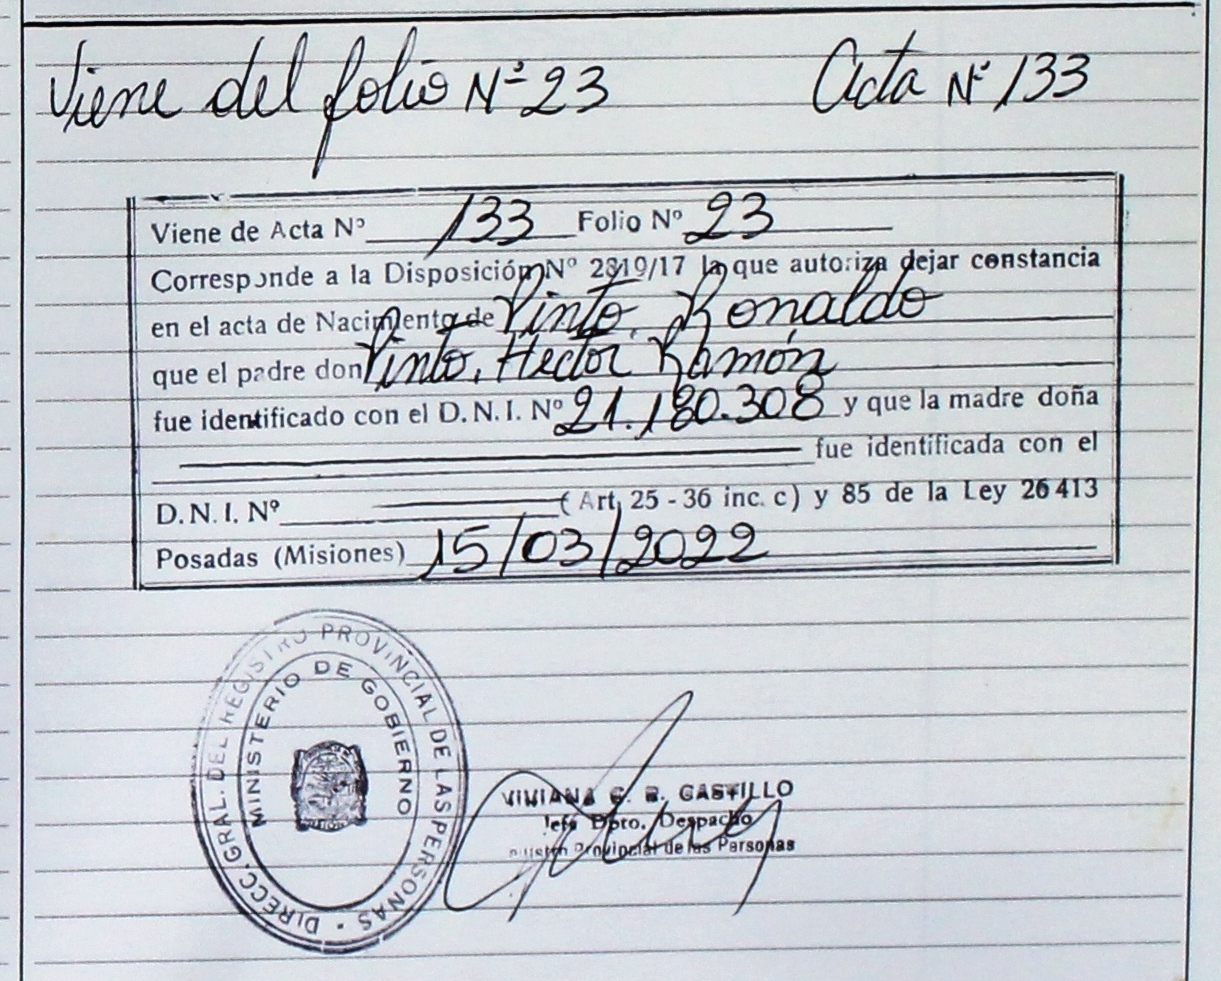 Viene del folio Nº 23 Acta Nº 133
Viene de Acta Nº 133 Folio Nº 23
Corresponde a la Disposición Nº 2819/17 la que autoriza dejar constancia
en el acta de Nacimiento de Pinto, Ronaldo
que el padre don Pinto, Hector Ramón
fue identificado con el D.N.I. Nº 21.180.308 y que la madre doña
fue identificada con el
D.N.I. Nº (Art, 25 - 36 inc. c) y 85 de la Ley 26413
Posadas (Misiones) 15/03/2022
DIRECC. GRAL. DEL REGISTRO PROVINCIAL DE LAS PERSONAS
MINISTERIO DE GOBIERNO
VIVIANA CASTILLO
Jefe Dpto. Despacho
Provincial de las Personas